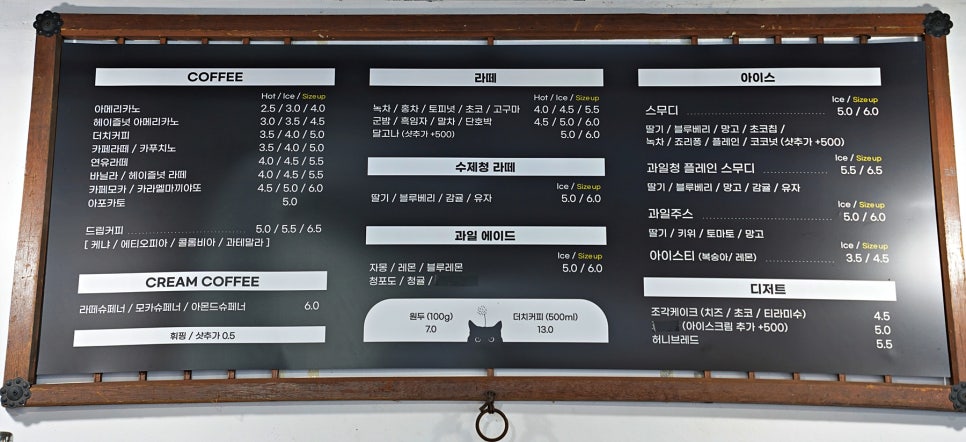 COFFEE
Hot / Ice / Sizeup
아메리카노 2.5 / 3.0 / 4.0
헤이즐넛 아메리카노 3.0 / 3.5 / 4.5
더치커피 3.5 / 4.0 / 5.0
카페라떼 / 카푸치노 3.5 / 4.0 / 5.0
연유라떼 4.0 / 4.5 / 5.5
바닐라 / 헤이즐넛 라떼 4.0 / 4.5 / 5.5
카페모카 / 카라멜마끼야또 4.5 / 5.0 / 6.0
아포카토 5.0
드립커피 5.0 / 5.5 / 6.5
[ 케냐 / 에티오피아 / 콜롬비아 / 과테말라 ]
CREAM COFFEE
라떼슈페너 / 모카슈페너 / 아몬드슈페너 6.0
휘핑 / 샷추가 0.5
라떼
Hot / Ice / Sizeup
녹차 / 홍차 / 토피넛 / 초코 / 고구마 4.0 / 4.5 / 5.5
군밤 / 흑임자 / 말차 / 단호박 4.5 / 5.0 / 6.0
달고나 (샷추가 +500) 5.0 / 6.0
수제청 라떼
Ice / Sizeup
딸기 / 블루베리 / 감귤 / 유자 5.0 / 6.0
과일 에이드
Ice / Sizeup
자몽 / 레몬 / 블루레몬 5.0 / 6.0
청포도 / 청귤 /
원두 (100g) 더치커피 (500ml)
7.0 13.0
아이스
Ice / Sizeup
스무디 5.0 / 6.0
딸기 / 블루베리 / 망고 / 초코칩 /
녹차 / 죠리퐁 / 플레인 / 코코넛 (샷추가 +500)
Ice / Sizeup
과일청 플레인 스무디 5.5 / 6.5
딸기 / 블루베리 / 망고 / 감귤 / 유자
Ice / Sizeup
과일주스 5.0 / 6.0
딸기 / 키위 / 토마토 / 망고
Ice / Sizeup
아이스티 (복숭아/ 레몬) 3.5 / 4.5
디저트
조각케이크 (치즈 / 초코 / 티라미수) 4.5
(아이스크림 추가 +500) 5.0
허니브레드 5.5